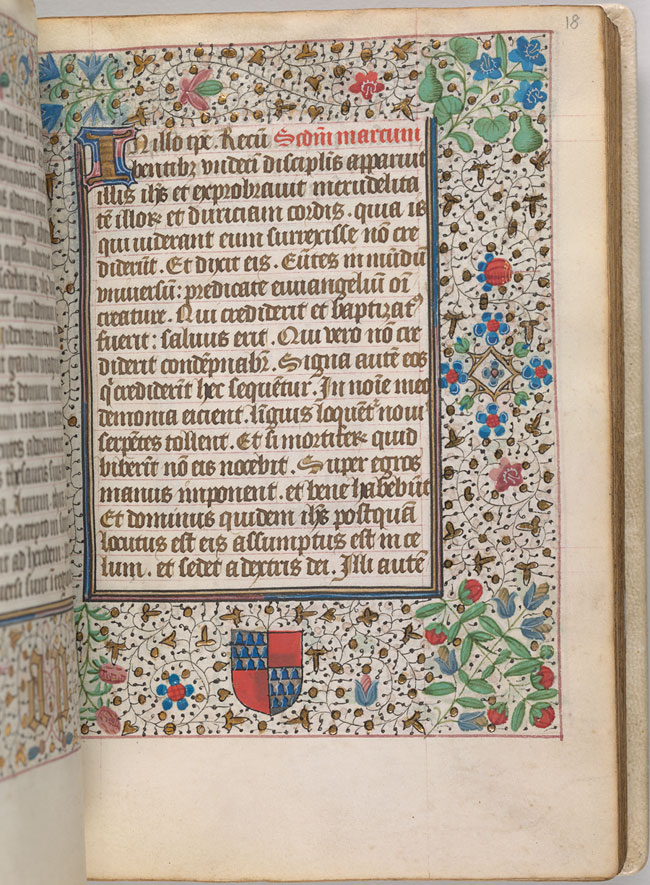 18
In illo tp̄e. Recū Scdm̄ marcum
bentibꝫ vndeci disciplis apparuit
illis ih̄s et exprobrauit incrudelita
tē illoꝝ et duriciam cordis. quia iis
qui uiderant eum surrexisse nō cre
diderūt. Et dixit eis. Eūtes in mūdū
vniuersū: predicate euuangeliū oī
creature. Qui crediderit et baptizatꝰ
fuerit: saluus erit. Qui vero nō cre
diderit condēpnabr̄. Signa autē eos
q̄ crediderīt hec sequētur. In noīe meo
demonia eicient. līguis loquētr̄ nouis
serpētes tollent. Et si mortiferꝝ quid
biberīt nō eis nocebit. Super egros
manus imponent. et bene habebūt
Et dominus quidem ih̄s postquā
locutus est eis assumptus est in ce
lum. et sedet a dextris dei. Illi autē